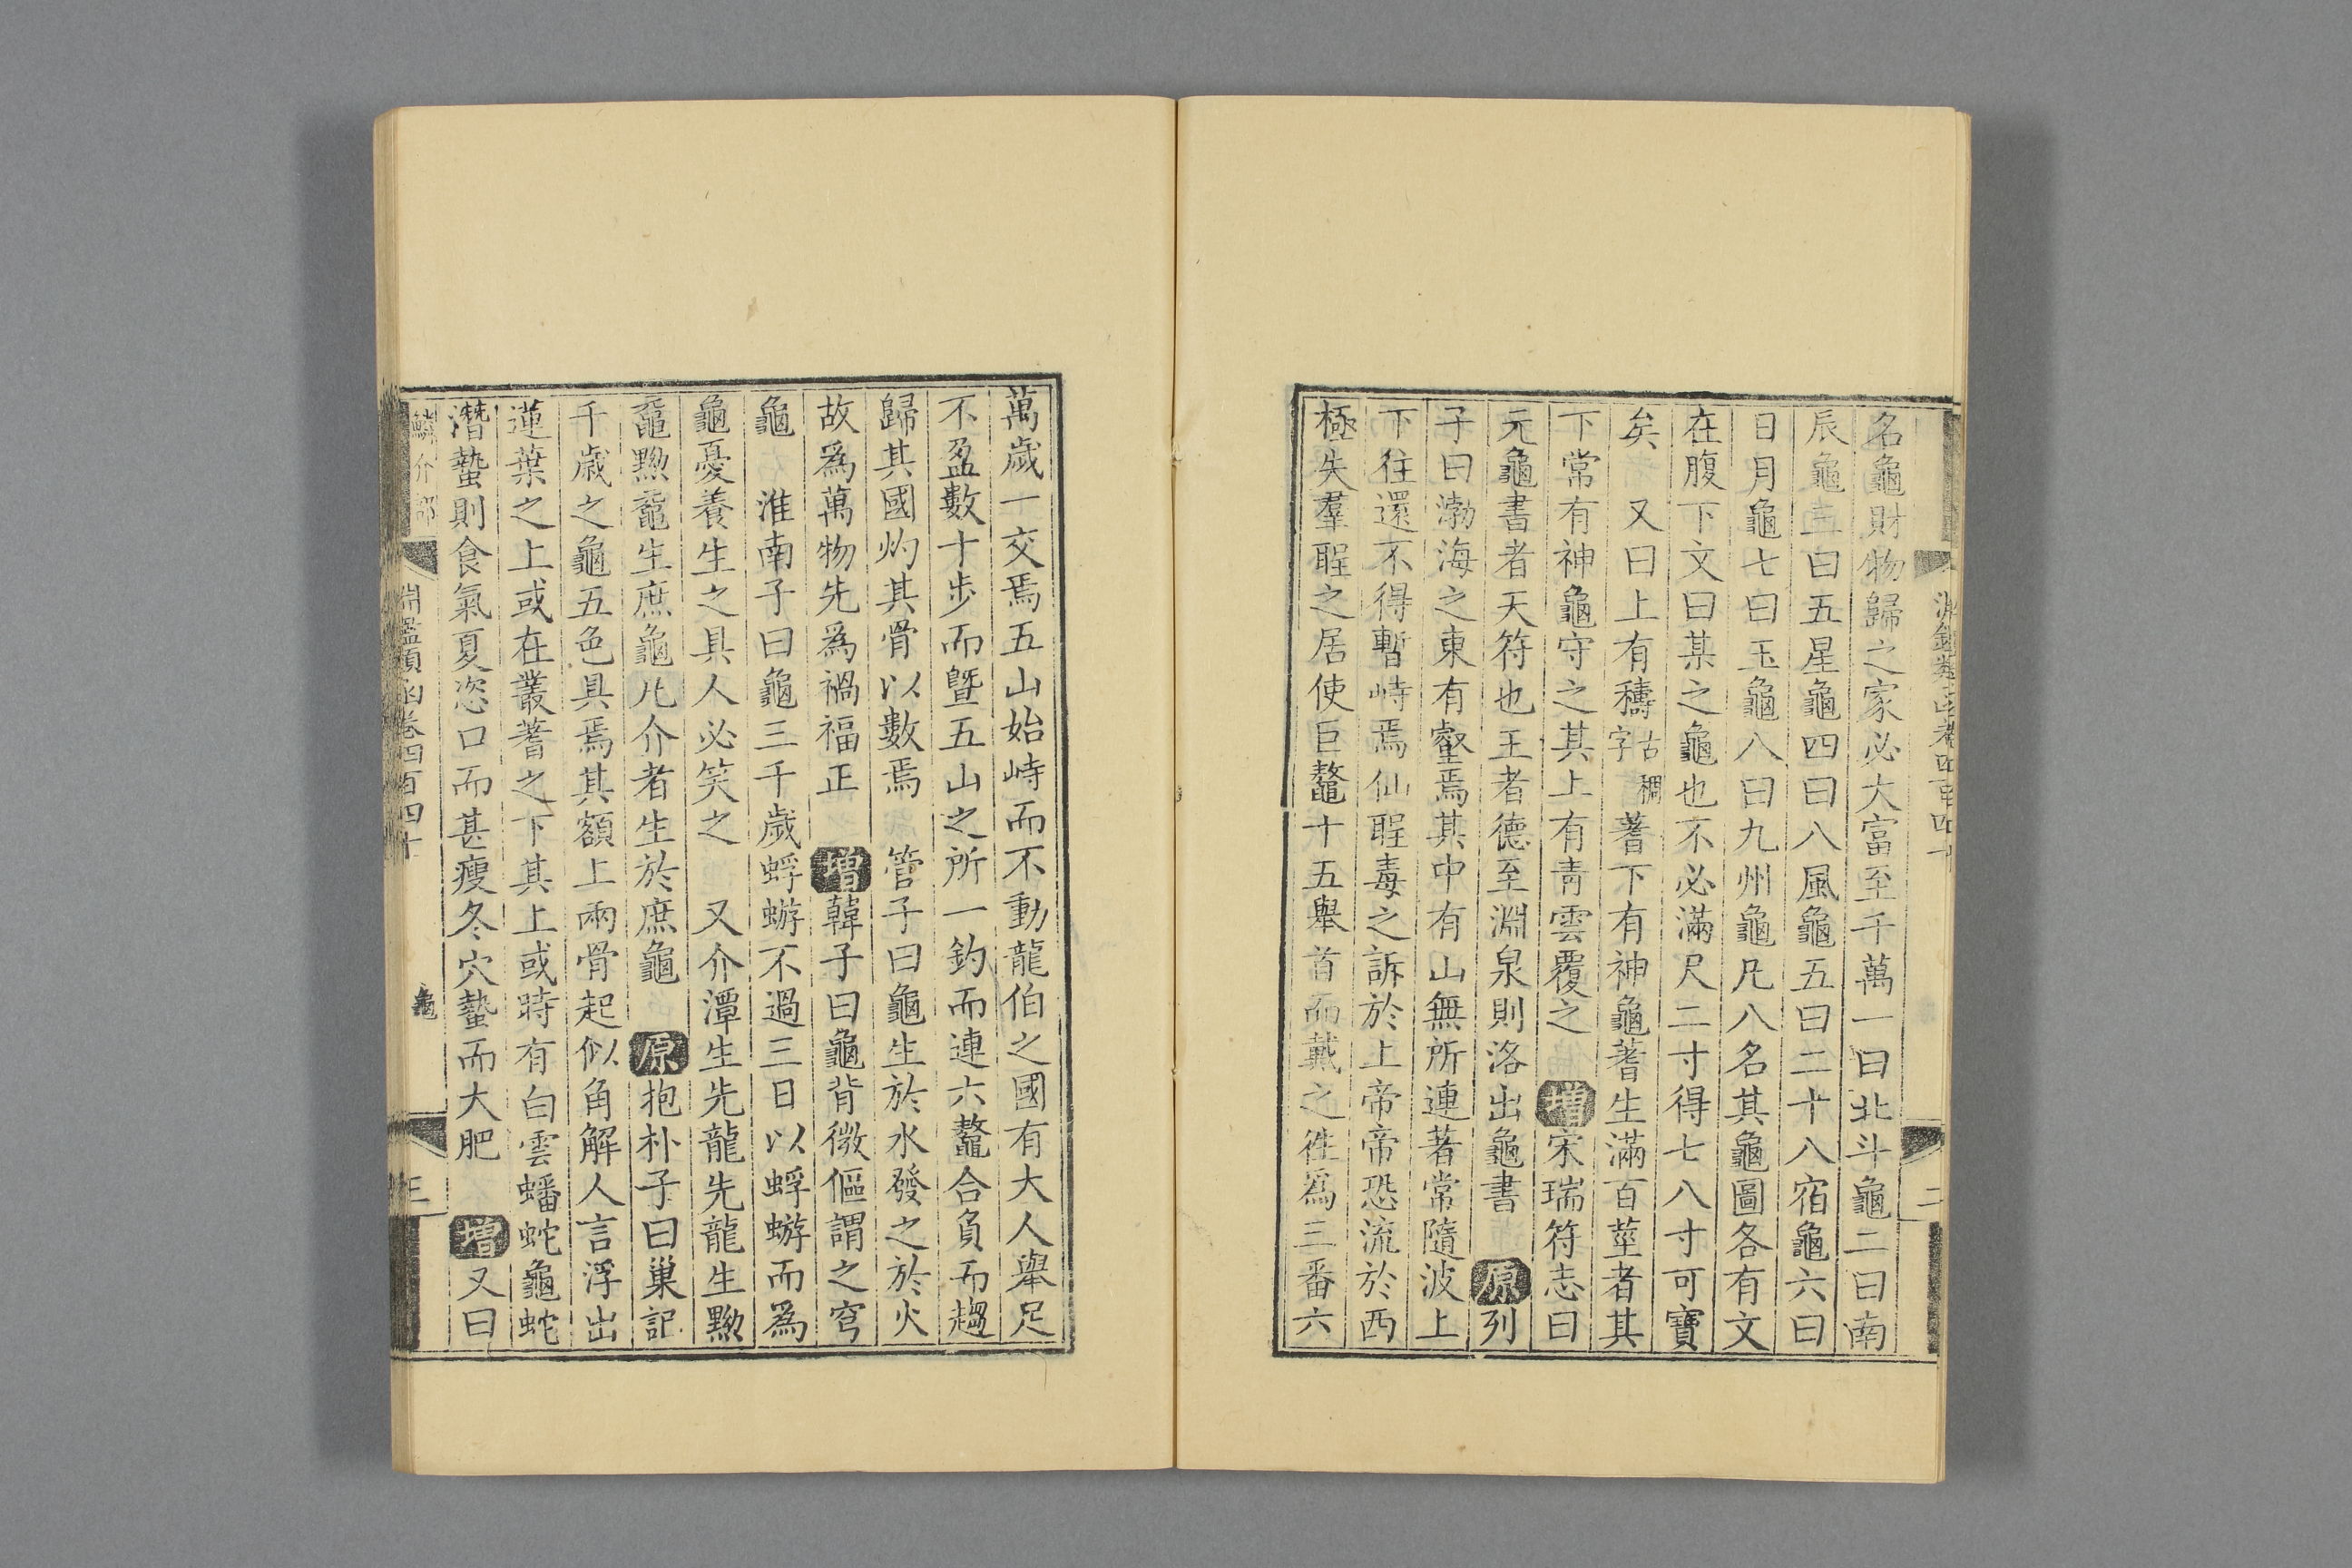 名龜財物歸之家必大富至千萬一曰北斗龜二曰南
辰龜三曰五星龜四曰八風龜五曰二十八宿龜六曰
日月龜七曰玉龜八曰九州龜凡八名其龜圖各有文
在腹下文曰某之龜也不必滿尺二寸得七八寸可寶
矣　又曰上有擣古稠字蓍下有神龜蓍生滿百莖者其
下常有神龜守之其上有青雲覆之　增宋瑞符志曰
元龜書者天符也王者德至淵泉則洛出龜書　原列
子曰渤海之東有壑焉其中有山無所連著常隨波上
下往還不得暫峙焉仙聖毒之訴於上帝帝恐流於西
極失羣聖之居使巨鼇十五舉首而戴之迭爲三番六
萬歲一交焉五山始峙而不動龍伯之國有大人舉足
不盈數十步而曁五山之所一釣而連六鼇合負而趨
歸其國灼其骨以數焉　管子曰龜生於水發之於火
故爲萬物先爲禍福正　增韓子曰龜背微傴謂之穹
龜　淮南子曰龜三千歲蜉蝣不過三日以蜉蝣而爲
龜憂養生之具人必笑之　又介潭生先龍先龍生黥
黿黥黿生庶龜凡介者生於庶龜　原抱朴子曰巢記
千歲之龜五色具焉其額上兩骨起似角解人言浮出
蓮葉之上或在叢蓍之下其上或時有白雲蟠蛇龜蛇
潛蟄則食氣夏恣口而甚瘦冬穴蟄而大肥　增又曰
鱗介部　淵鑑類函卷四百四十　龜　三